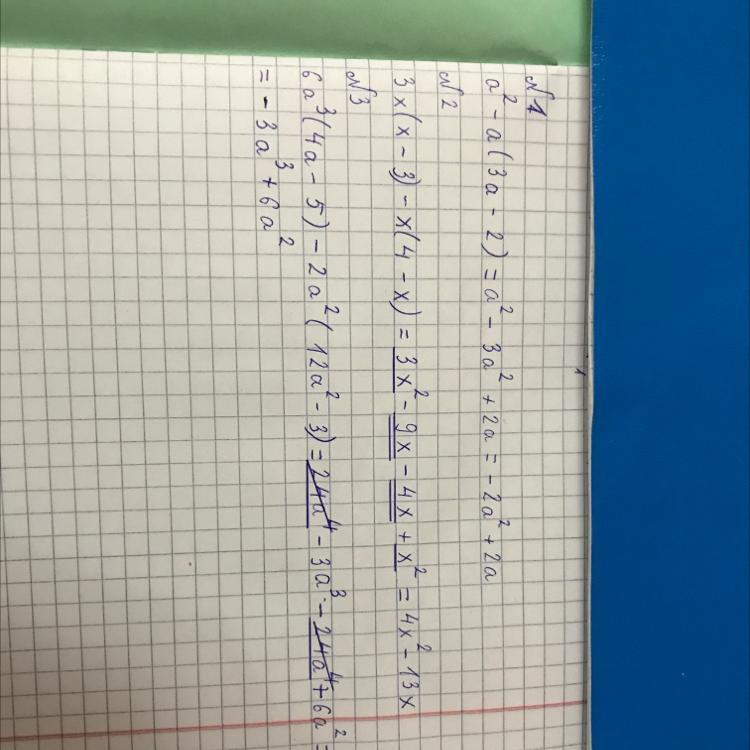 №1
a² - a(3a - 2) = a² - 3a² + 2a = -2a² + 2a
№2
3x(x - 3) - x(4 - x) = 3x² - 9x - 4x + x² = 4x² - 13x
№3
6a³(4a - 5) - 2a²(12a² - 3) = 24a⁴ - 3a³ - 24a⁴ + 6a² =
= -3a³ + 6a²